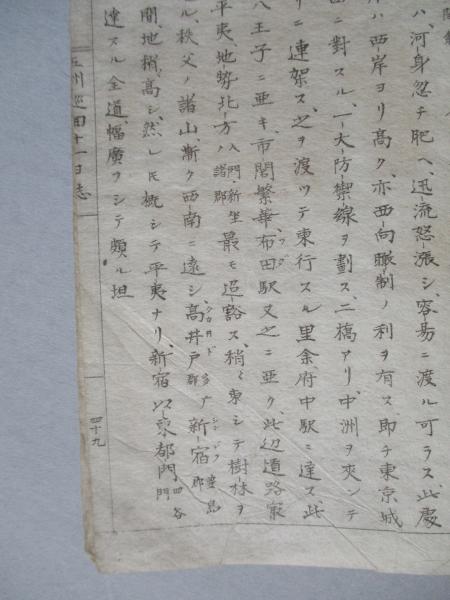 ハ、河身忽チ肥ヘ迅流怒漲シ、容易ニ渡ル可ラス、此處
岸ハ西岸ヨリ高ク、亦西向瞰制ノ利ヲ有ス、即チ東京城
ニ對スル、一大防禦線ヲ劃ス、二橋アリ、中洲ヲ夾ンテ
リニ連架ス、之ヲ渡ツテ東行スル里余、府中駅ニ達ス、此
八王子ニ亜キ、市閭繁華、布田駅又之ニ亜ク、此辺道路最
平夷、地勢北方ハ入間新座諸郡最モ迢豁ス、稍々東シテ樹林ヲ
ル、秩父ノ諸山漸ク西南ニ遠シ、高井戸多ヲ新宿豊島郡
間地稍高シ、然レ𪜈概シテ平夷ナリ、新宿ハ東都門四谷門
達スル全道、幅廣フシテ頗ル坦
五州巡回十一日志
四十九